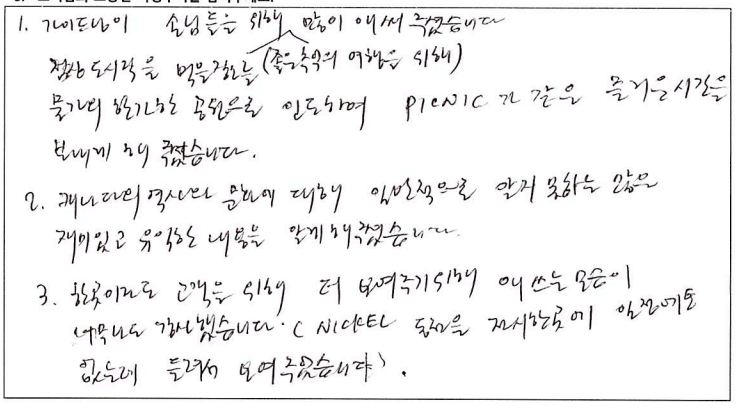 1. 가이드님이 손님들을 위해 많이 애써 주셨습니다
(좋은추억의 여행을 위해)
점심도시락을 먹을장소를
물가의 한가한 공원으로 인도하여 PICNIC 과 같은 즐거운시간을
보내게 해 주셨습니다.
2. 캐나다의 역사와 문화에 대해 일반적으로 알지 못하는 많은
재미있고 유익한 내용을 알게 해주셨습니다.
3. 한곳이라도 고객을 위해 더 보여주기위해 애쓰는 모습이
너무나도 감사했습니다. (NICKEL 동전을 전시한곳에 일정에도
없는데 들려서 보여주었습니다).